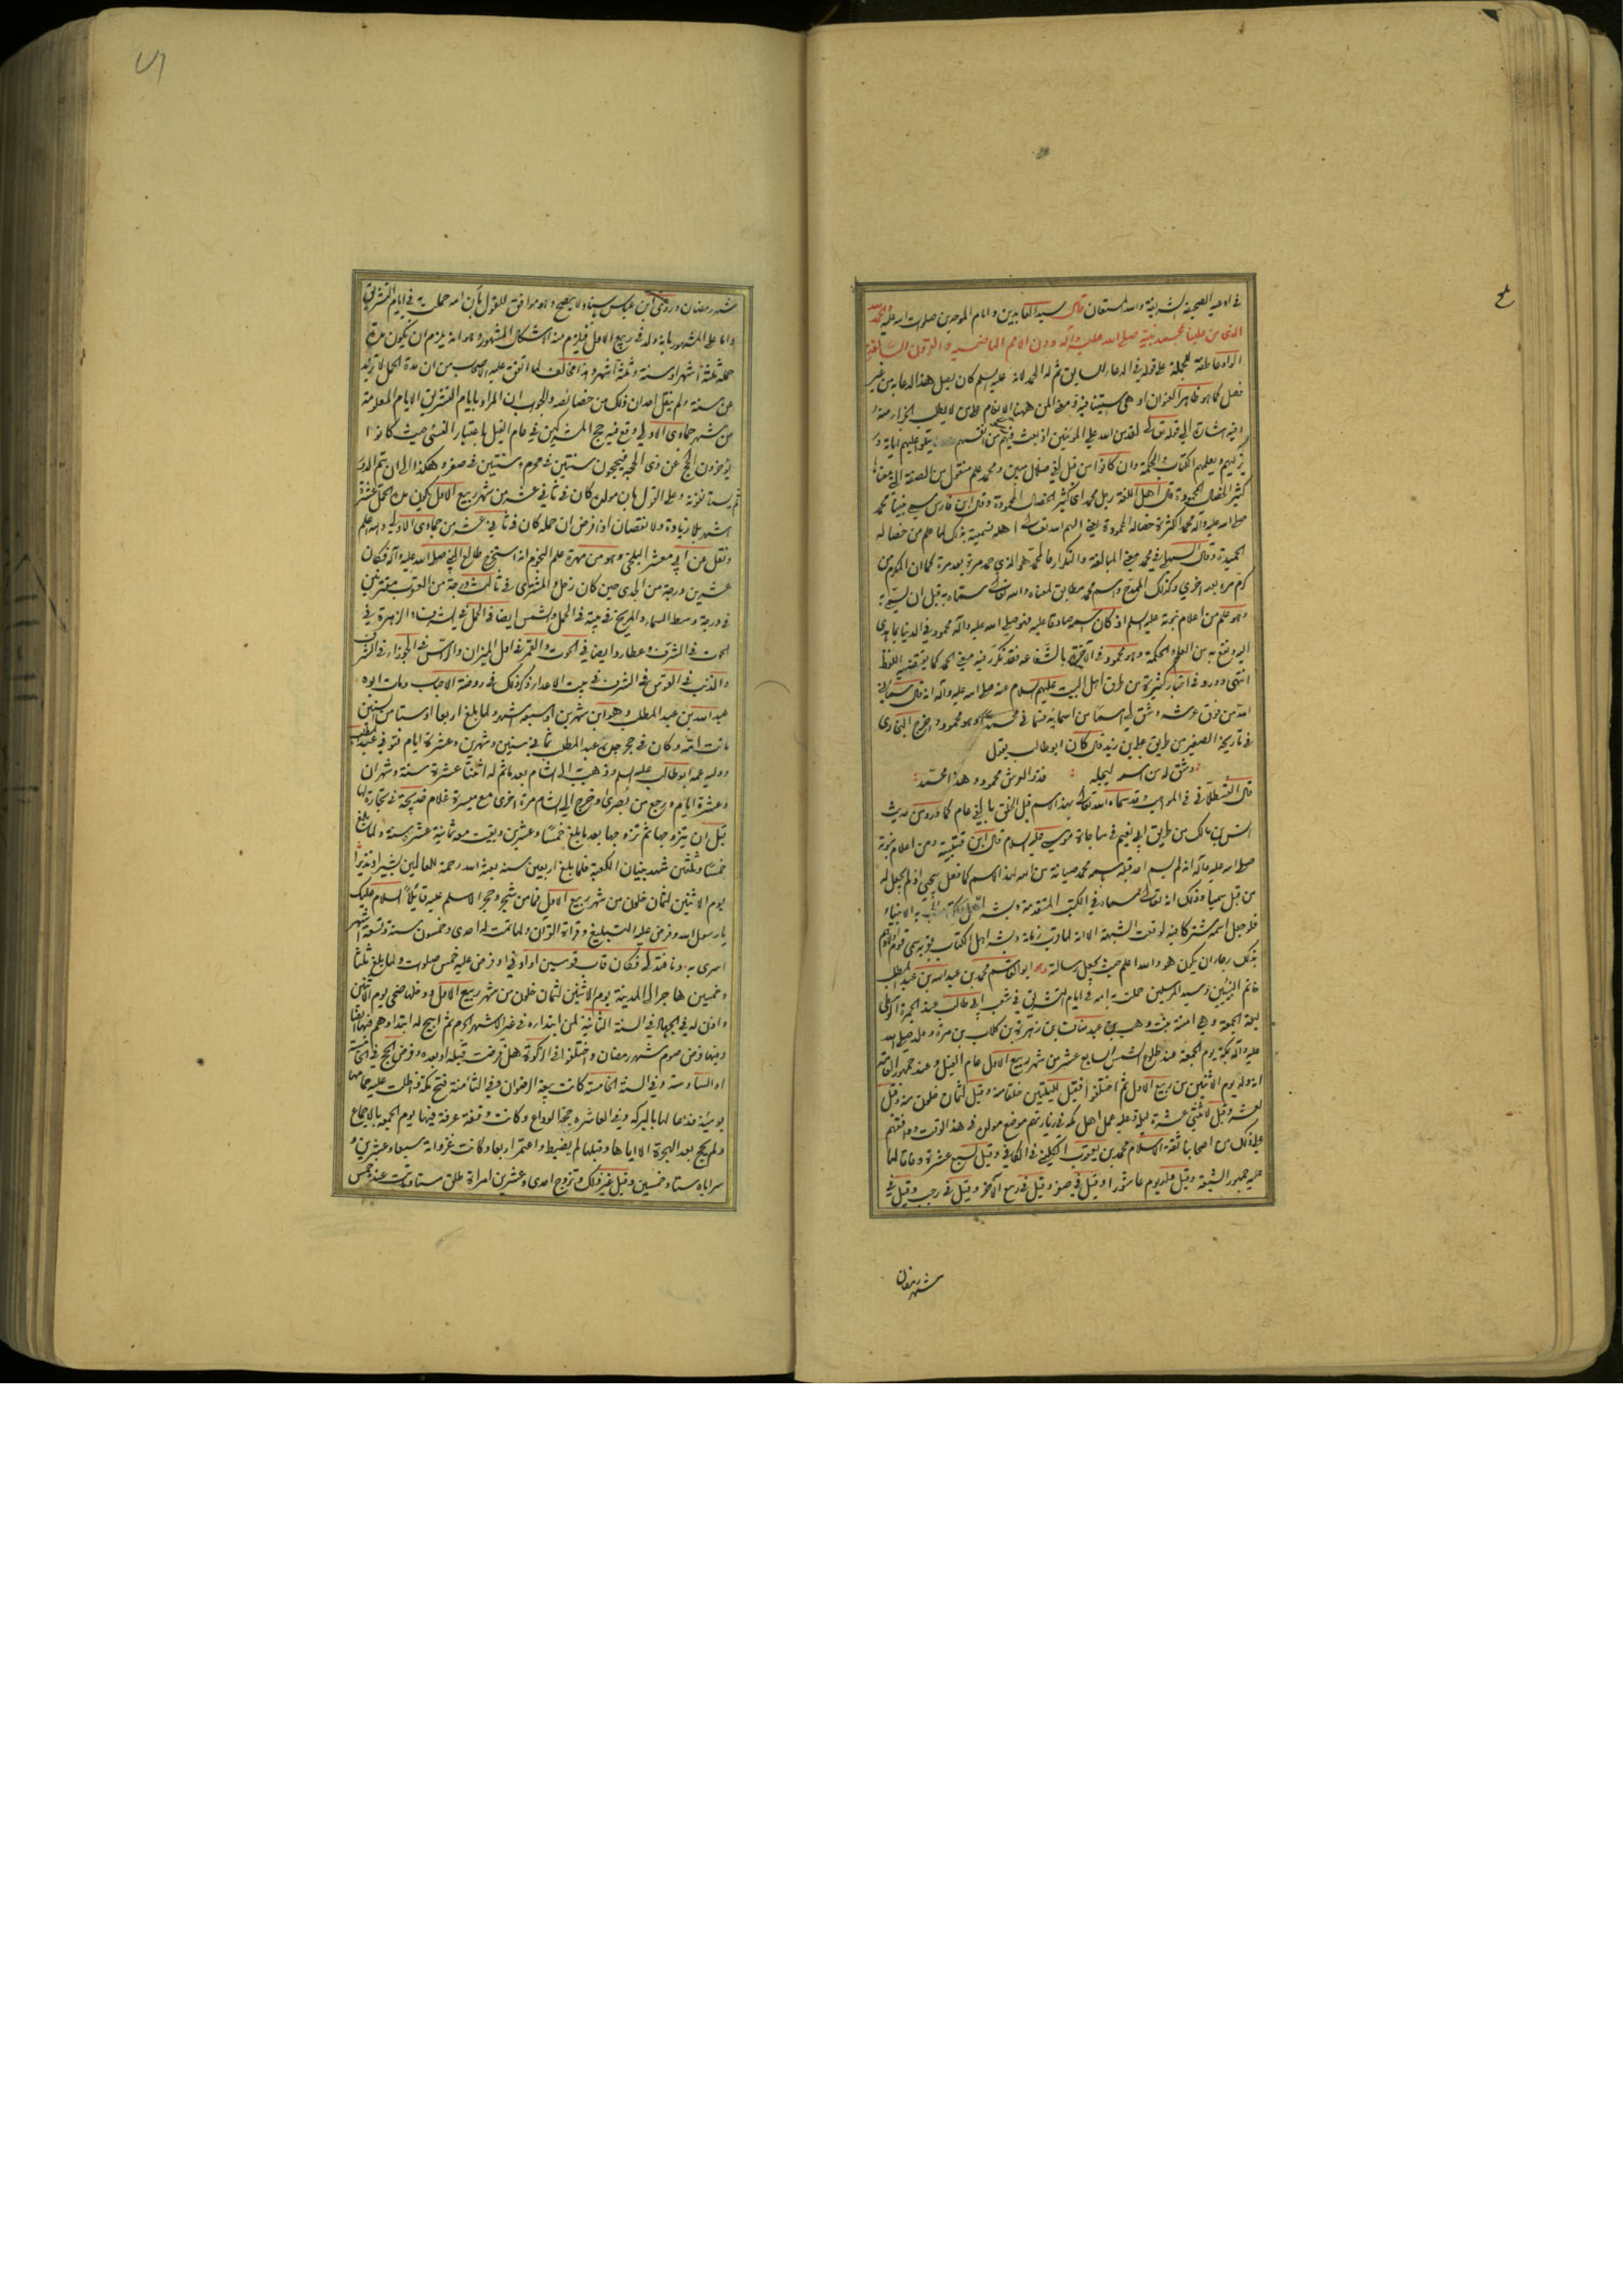 في ادعية الصحيفة الشريفة والله المستعان قال سيد العابدين وامام الموحدين صلوات الله عليه والحمد لله
الذي من علينا بمحمد نبيه صلى الله عليه وآله دون الامم الماضية والقرون السالفة
الواو عاطفة للجملة على قوله في الدعاء السابق ثم له الحمد لانه عليه السلم كان يصل هذا الدعاء به من غير
فصل كما هو ظاهر العنوان او هي استينافية ومعنى المن ههنا الانعام على من لا يطلب الجزاء منه و
فيه اشارة الى قوله تعالى لقد من الله على المؤمنين اذ بعث فيهم رسولا من انفسهم يتلو عليهم اياته و
يزكيهم ويعلمهم الكتاب والحكمة وان كانوا من قبل لفي ضلال مبين ومحمد علم منقول من الصفة التي معناها
كثير الخصال المحمودة قال اهل اللغة رجل محمد اي كثير الخصال المحمودة وقال ابن فارس سمي نبينا محمد
صلى الله عليه وآله محمدا لكثرة خصاله المحمودة يعني الهم الله تعالى اهله تسميته بذلك لما علم من خصاله
الحميدة وقال السهيلي في محمد معنى المبالغة والتكرار فالمحمد هو الذي حمد مرة بعد مرة كما ان المكرم من
كرم مرة بعد اخرى وكذلك الممدح واسم محمد مطابق لمعناه والله تعالى سماه به قبل ان يسمى به
وهو علم من اعلام نبوته عليه السلم اذ كان اسمه صادقا عليه فهو صلى الله عليه وآله محمود في الدنيا بما هدى
اليه ونفع به من العلم والحكمة وهو محمود في الآخرة بالشفاعة فقد تكرر فيه معنى الحمد كما يقتضيه اللفظ
انتهى وورد في اخبار كثيرة من طرق اهل البيت عليهم السلام عنه صلى الله عليه وآله انه قال سماني
الله من فوق عرشه وشق لي اسما من اسمائه فسماني محمدا وهو محمود واخرج البخاري
في تاريخه الصغير من طريق علي بن زيد قال كان ابو طالب يقول
وشق له من اسمه ليجله فذو العرش محمود وهذا محمد
قال القسطلاني في المواهب وقد سماه الله تعالى بهذا الاسم قبل الخلق بالفي عام كما ورد من حديث
انس بن مالك من طريق ابي نعيم في مناجاة موسى عليه السلام قال ابن قتيبة ومن اعلام نبوته
صلى الله عليه وآله انه لم يسم احد قبله باسمه محمد صيانة من الله لهذا الاسم كما فعل بيحيى اذ لم يجعل له
من قبل سميا وذلك انه تعالى سماه في الكتب المتقدمة وبشر به الانبياء
فلو جعل اسمه مشتركا فيه لوقعت الشبهة الا انه لما قرب زمانه وبشر اهل الكتاب بقربه سمى قوم اولادهم
بذلك رجاء ان يكون هو والله اعلم حيث يجعل رسالته وهو ابو القاسم محمد بن عبد الله بن عبد المطلب
خاتم النبيين وسيد المرسلين حملت به امه في ايام التشريق في شعب ابي طالب عند الجمرة الوسطى
ليلة الجمعة وهي امنة بنت وهب بن عبد مناف بن زهرة بن كلاب بن مرة وولد صلى الله
عليه وآله بمكة يوم الجمعة عند طلوع الشمس السابع عشر من شهر ربيع الاول عام الفيل وعند جمهور العامة
انه ولد يوم الاثنين من ربيع الاول ثم اختلفوا فقيل لليلتين خلتا منه وقيل لثمان خلون منه وقيل
لعشر وقيل لاثنتي عشرة ليلة وعليه عمل اهل مكة في زيارتهم موضع مولده في هذا الوقت ووافقهم
على ذلك من اصحابنا ثقة الاسلام محمد بن يعقوب الكليني في الكافي وقيل لسبع عشرة وفاقا لما
عليه جمهور الشيعة وقيل ولد يوم عاشورا وقيل في صفر وقيل في ربيع الآخر وقيل في رجب وقيل في
شهر رمضان
شهر رمضان وروي عن ابن عباس باسناد لا يصح وهو موافق للقول بان امه حملت به في ايام التشريق
واما على المشهور بانه ولد في ربيع الاول فيلزم منه الاشكال المشهور وهو انه يلزم ان يكون مدة
حمله ثلثة اشهر او سنة وثلثة اشهر وهذا مخالف لما اتفق عليه الاصحاب من ان مدة الحمل لا تزيد
عن سنة ولم ينقل احد ان ذلك من خصائصه والجواب ان المراد بايام التشريق الايام المعلومة
من شهر جمادى الاولى وقع فيه حج المشركين في عام الفيل باعتبار النسئ حيث كانوا
يؤخرون الحج عن ذي الحجة فيحجون سنتين في محرم وسنتين في صفر وهكذا الى ان يتم الدور
ثم يستانفونه وعلى القول بان مولده كان في ثاني عشر من شهر ربيع الاول يكون مدة الحمل عشرة
اشهر بلا زيادة ولا نقصان اذا فرض ان حمله كان في ثاني عشر من جمادى الاولى والله اعلم
ونقل عن ابي معشر البلخي وهو من مهرة علم النجوم انه استخرج طالع النبي صلى الله عليه وآله فكان
عشرين درجة من الجدي حين كان زحل والمشتري في ثالث درجة من العقرب مقترنين
في درجة وسط السماء والمريخ في بيته في الحمل والشمس ايضا في الحمل في الشرف والزهرة في
الحوت في الشرف وعطارد ايضا في الحوت والقمر في اول الميزان والراس في الجوزاء في الشرف
والذنب في القوس في الشرف في بيت الاعداء ذكر ذلك في روضة الاحباب ومات ابوه
عبد الله بن عبد المطلب وهو ابن شهرين او سبعة اشهر ولما بلغ اربعا او ستا من السنين
ماتت امه وكان في حجر جده عبد المطلب ثماني سنين وشهرين وعشرة ايام فتوفي عبد المطلب
ووليه عمه ابو طالب عليه السلم وذهب الى الشام بعد ما تم له اثنتا عشرة سنة وشهران
وعشرة ايام ورجع من بصرى وخرج الى الشام مرة اخرى مع ميسرة غلام خديجة في تجارة لها
قبل ان يتزوجها ثم تزوجها بعد ما بلغ خمسا وعشرين وبقيت معه ثمانية عشر سنة ولما بلغ
خمسا وثلثين شهد بنيان الكعبة فلما بلغ اربعين سنة بعثه الله رحمة للعالمين بشيرا ونذيرا
يوم الاثنين لثمان خلون من شهر ربيع الاول فما من شجر وحجر الا سلم عليه قائلا السلام عليك
يا رسول الله وفرض عليه التبليغ وقراءة القرآن ولما تمت له احدى وخمسون سنة وتسعة اشهر
اسرى به ودنا فتدلى فكان قاب قوسين او ادنى وفرض عليه خمس صلوات ولما بلغ ثلثا
وخمسين هاجر الى المدينة يوم الاثنين لثمان خلون من شهر ربيع الاول ودخلها ضحى يوم الاثنين
واذن له في الجهاد في السنة الثانية لمن ابتداه في غير الاشهر الحرم ثم ابيح له ابتداؤهم فيها ايضا
وفيها فرض صوم شهر رمضان واختلفوا في الزكوة هل فرضت قبله او بعده وفرض الحج في الخامسة
او السادسة وفي السنة الخامسة كانت بيعة الرضوان وفي الثامنة فتح مكة فاظلت عليه حمامها
يومئذ فدعا لها بالبركة وفي العاشرة حجة الوداع وكانت وقفة عرفة فيها يوم الجمعة بالاجماع
ولم يحج بعد الهجرة الا اياها وقبلها لم يضبط واعتمر اربعا وكانت غزواته سبعا وعشرين و
سراياه ستا وخمسين وقيل غير ذلك وتزوج احدى وعشرين امراة طلق ستا وماتت عنده خمس